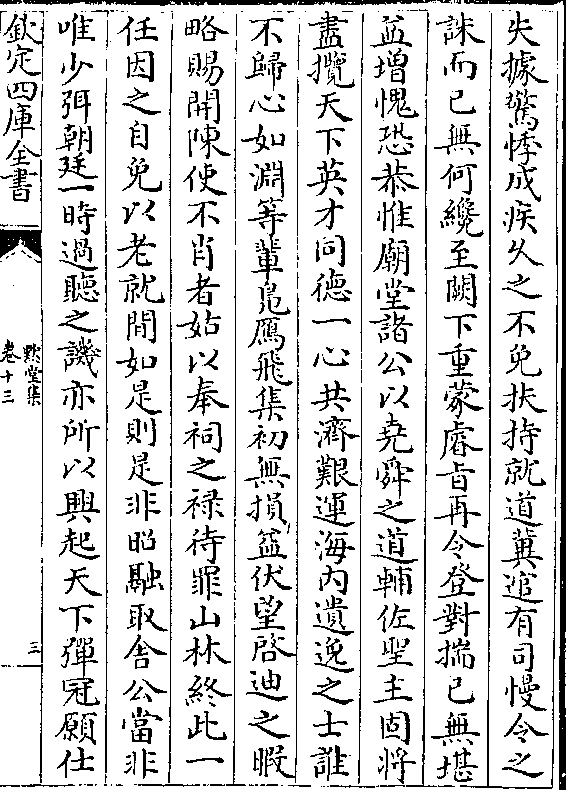 失據驚悸成疾乆之不免扶持就道冀逭有司慢令之
誅而已無何纔至闕下重蒙睿旨再令登對揣己無堪
益增愧恐恭惟廟堂諸公以堯舜之道輔佐聖主固將
盡攬天下英才同德一心共濟艱運海内遺逸之士誰
不歸心如淵等輩鳬鴈飛集初無損益伏望啓迪之暇
略賜開陳使不肖者姑以奉祠之禄待罪山林終此一
任因之自免以老就閒如是則是非昭融取舍公當非
唯少弭朝廷一時過聽之譏亦所以興起天下彈冠願仕
欽定四庫全書
默堂集
卷十三
三